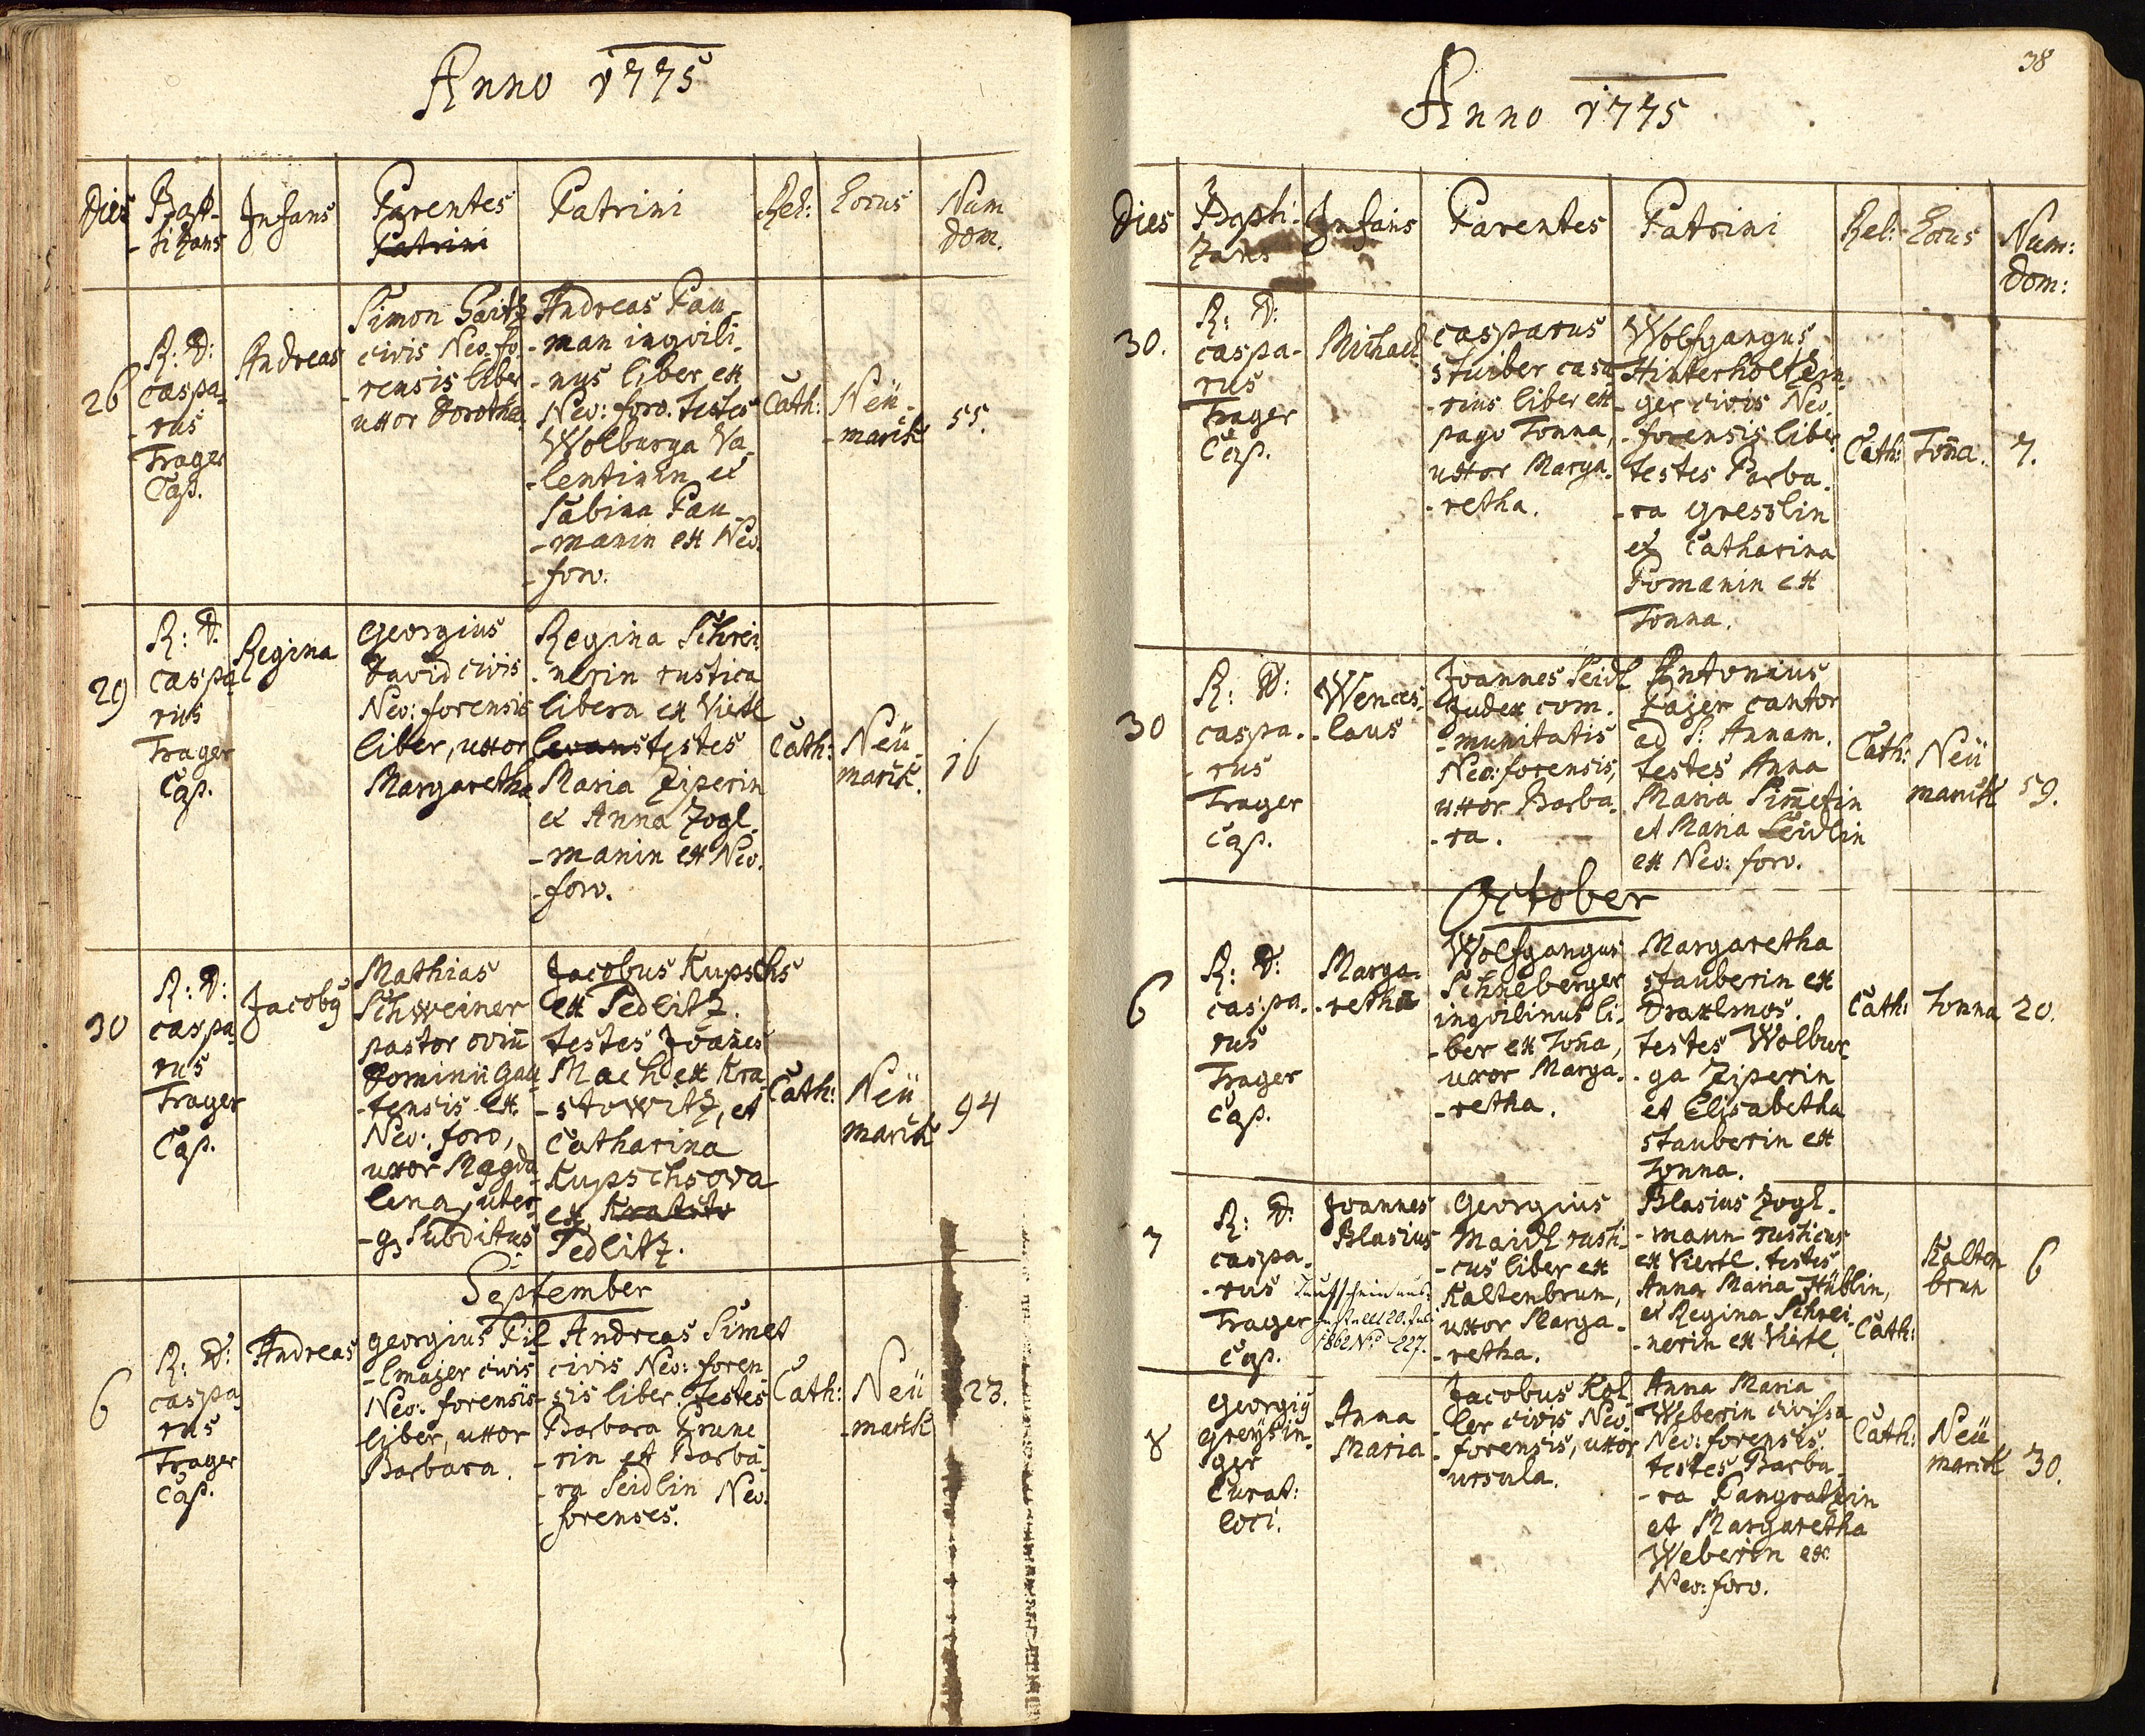 Anno 1775
Dies
Bapt-
-tizans
Infans
Parentes
Patrini
Patrini
Rel:
Locus
Num
dom.
26
R: D:
Caspa-
-rus
Trager
Cap.
Andreas
Simon
civis Neo-fo-
-rensis liber
uxor Dorothea.
Andreas Pau-
-man inqvili-
-nus liber ex
Neo: foro. testes
Wolburga Va-
-lentinin et
Sabina Pau-
-manin ex Neo-
-foro.
Cath:
Neü-
-markt
55.
29
R: D:
Caspa-
rus
Trager
Cap.
Regina
Georgius
David civis
Neo: forensis
liber, uxor
Margaretha
Regina Schrei-
-nerin rustica
libera ex Viertl
levans testes
Maria Ziperin
et Anna Zogl-
-manin ex Neo-
-foro.
Cath:
Neü-
markt.
16
30
R: D:
caspa-
rus
Trager
Cap.
Jacobg
Mathias
Schweiner
pastor oviū
Dominii Gau-
-tensis ex
Neo: foro,
uxor Magda-
lena, uter-
-q3 Subditus
Jacobus Kupschs
ex Sedlitz.
testes Joannes
Mach ex Kra-
-stowitz, et
Catharina
Kupschsova
ex
Sedlitz.
Cath:
Neü
markt
94
September
6
R: D:
caspa
rus
Trager
Cap.
Andreas
Georgius Pil-
-lmajer civis
Neo: forensis
liber, uxor
Barbara.
Andreas Simet
civis Neo: foren-
-sis liber. testes
Barbara Grune-
-rin et Barba-
-ra Seidlin Neo-
-forenses.
Cath:
Neü
-markt
23.
38
Anno 1775
Dies
Bapti-
zans
Infans
Parentes
Patrini
Rel:
Locus
Num:
dom:
30.
R: D:
caspa-
rus
Trager
Cap.
Michael
Casparus
Stuiber casa-
-rius liber ex
pago Tonna,
uxor Marga-
-retha.
Wolfgangus
Hinterholtzin-
-ger civis Neo-
-forensis liber
testes Barba-
-ra Gresslin
et Catharina
Pomanin ex
Tonna.
Cath:
Toña.
7.
30
R: D:
caspa-
-rus
Trager
Cap.
Wences-
-laus
Joannes Seidl
Judex com-
-munitatis
Neo: forensis,
uxor Barba-
-ra.
Antonius
Pajer cantor
ad S: Annam.
testes Anna
Maria Sim̄etin
et Maria Seidlin
ex Neo: foro.
Cath:
Neü
markt
59.
October
6
R: D:
caspa-
rus
Trager
Cap.
Marga-
-retha
Wolfgangus
Schneberger
inqvilinus li-
-ber ex Toña,
uxor Marga-
-retha.
Margaretha
stauberin ex
Draxlmos.
testes Wolbur-
-ga Ziperin
et Elisabetha
stauberin ex
Tonna.
Cath:
Tonna
20.
7
R: D:
caspa-
-rus
Trager
Cap.
Joannes
Blasius
Taufschein aus-
1862 No 227.
Georgius
Maidl rusti-
-cus liber ex
Kaltenbrun,
uxor Marga-
-retha.
Blasius Zogl-
-mann rusticus
ex Viertl. testes
Anna Maria Hüblin,
et Regina Schrei-
-nerin ex Viertl.
Cath:
Kalten
brun
6
8
Georgiy
Greysin-
ger
Curat:
loci.
Anna
Maria
Jacobus Kol-
-ler civis Neo-
-forensis, uxor
Ursula.
Anna Maria
Weberin civissa
Neo: forensis.
testes Barba-
-ra Pangratzin
et Margaretha
Weberin ex
Neo: foro.
Cath:
Neü
markt
30.